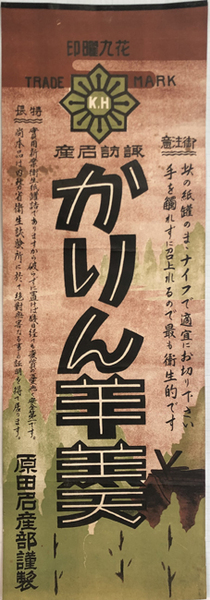 印曜九花
TRADE MARK
K.H
産名訪諏
かりん羊羹
御注意
此の紙鑵のまゝナイフで適宜にお切り下さい
手を觸れずに召上れるので最も衛生的です
特長
實用新案衛生紙鑵詰でありますから
原田名産部謹製